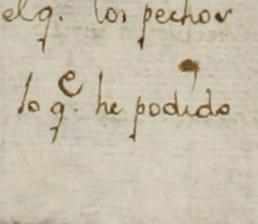 elq. los pechos
lo q.e he podido